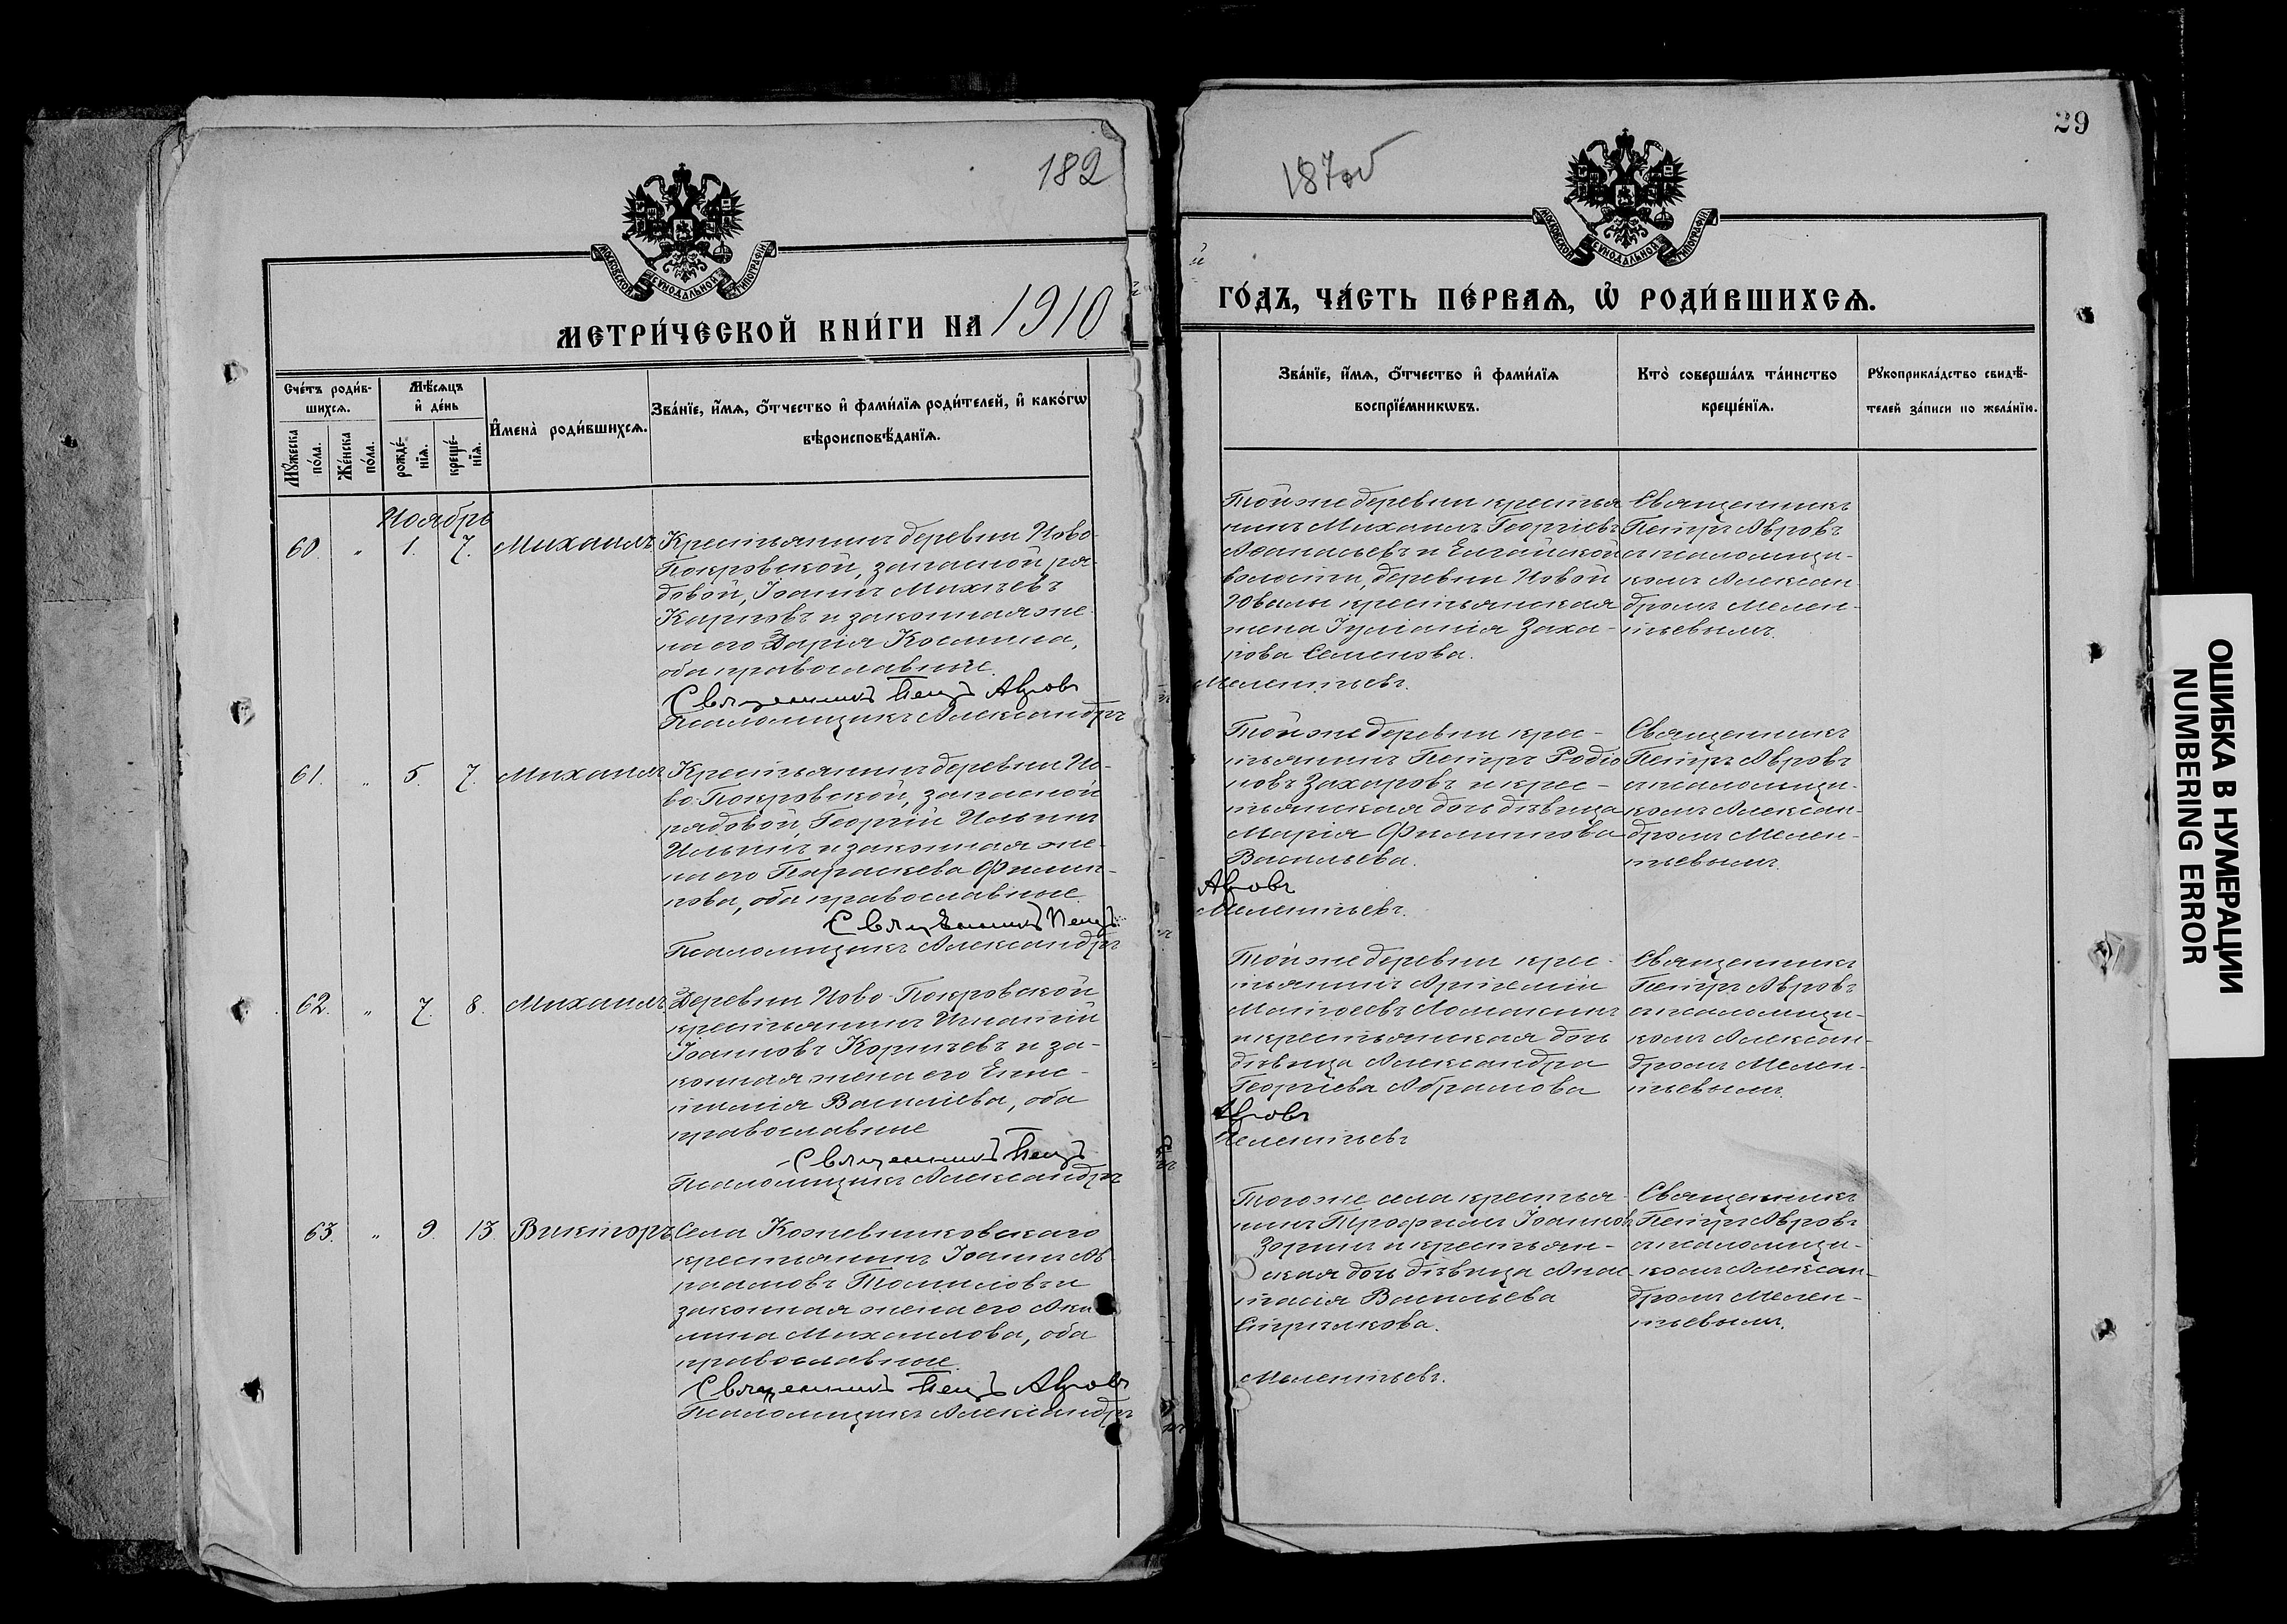 182
МОСКОВСКОЙ СѴНОДАЛЬНОЙ ТИПОГРАФІИ
МЕТРИ́ЧЕСКОЙ КНИ́ГИ НА 1910
Сче́тъ роди́в-
шихсѧ.
Мѣ́сѧцъ
и҆ де́нь
И҆мена̀ роди́вшихсѧ.
Зва́нїе, и҆́мѧ, ѻ҆́тчество и҆ фами́лїѧ роди́телей, и҆ како́гѡ
вѣроисповѣ́данїѧ.
Мꙋ́жеска
по́ла.
Же́нска
по́ла.
рожде́-
нїѧ.
креще́-
нїѧ.
Ноябрь
60. " 1. 7. Михаилъ
Крестьянинъ деревни Ново-
Покровской, запасной ря-
довой, Іоаннъ Михѣевъ
Карповъ и законная же-
на его Дарія Космина,
оба православные.
Священникъ Петръ Авровъ
Псаломщикъ Александръ
61. " 5. 7. Михаилъ
Крестьянинъ деревни Но-
во-Покровской, запасной
рядовой, Георгій Ильинъ
Ильинъ и законная же-
на его Параскева Филип-
пова, оба православные.
Священникъ Петръ
Псаломщикъ Александръ
62. " 7. 8. Михаилъ
Деревни Ново-Покровской
крестьянинъ Игнатій
Іоанновъ Корпчевъ и за-
конная жена его Епис-
тимія Василіева, оба
православные
Священникъ Петръ
Псаломщикъ Александръ
63. " 9. 13. Викторъ
Села Кожевниковскаго
крестьянинъ Іоаннъ Ав-
раамовъ Томиловъ и
законная жена его Аки-
лина Михаилова, оба
православные.
Священникъ Петръ Авровъ
Псаломщикъ Александръ
29
187об
МОСКОВСКОЙ СѴНОДАЛЬНОЙ ТИПОГРАФІИ
ГО́ДЪ, ЧА́СТЬ ПЕ́РВАѦ, Ѡ҆ РОДИ́ВШИХСѦ.
Зва́нїе, и҆́мѧ, ѻ҆́тчество и҆ фами́лїѧ
воспрїе́мникѡвъ.
Кто̀ соверша́лъ та́инство
креще́нїѧ.
Рꙋкоприкла́дство свидѣ́-
телей за́писи по жела́нїю.
Той же деревни крестья-
нинъ Михаилъ Георгіевъ
Аѳанасьевъ и Елгайской
волости, деревни Новой
Ювалы крестьянская
жена Іуліанія Заха-
рова Семенова.
Мелентьевъ.
Священникъ
Петръ Авровъ
съ псаломщи-
комъ Алексан-
дромъ Мелен-
тьевымъ.
Той же деревни крес-
тьянинъ Петръ Родіо-
новъ Захаровъ и крес-
тьянская дочь дѣвица
Марія Филиппова
Васильева.
Авровъ
Мелентьевъ.
Священникъ
Петръ Авровъ
съ псаломщи-
комъ Алексан-
дромъ Мелен-
тьевымъ.
Той же деревни крес-
тьянинъ Артемій
Матѳеевъ Ломакинъ
и крестьянская дочь
дѣвица Александра
Георгіева Абрамова
Авровъ
Мелентьевъ
Священникъ
Петръ Авровъ
съ псаломщи-
комъ Алексан-
дромъ Мелен-
тьевымъ.
Того же села крестья-
нинъ Трофимъ Іоанновъ
Зоринъ и крестьян-
ская дочь дѣвица Анас-
тасія Васильева
Стрѣлкова.
Мелентьевъ.
Священникъ
Петръ Авровъ
съ псаломщи-
комъ Алексан-
дромъ Мелен-
тьевымъ.
ОШИБКА В НУМЕРАЦИИ
NUMBERING ERROR